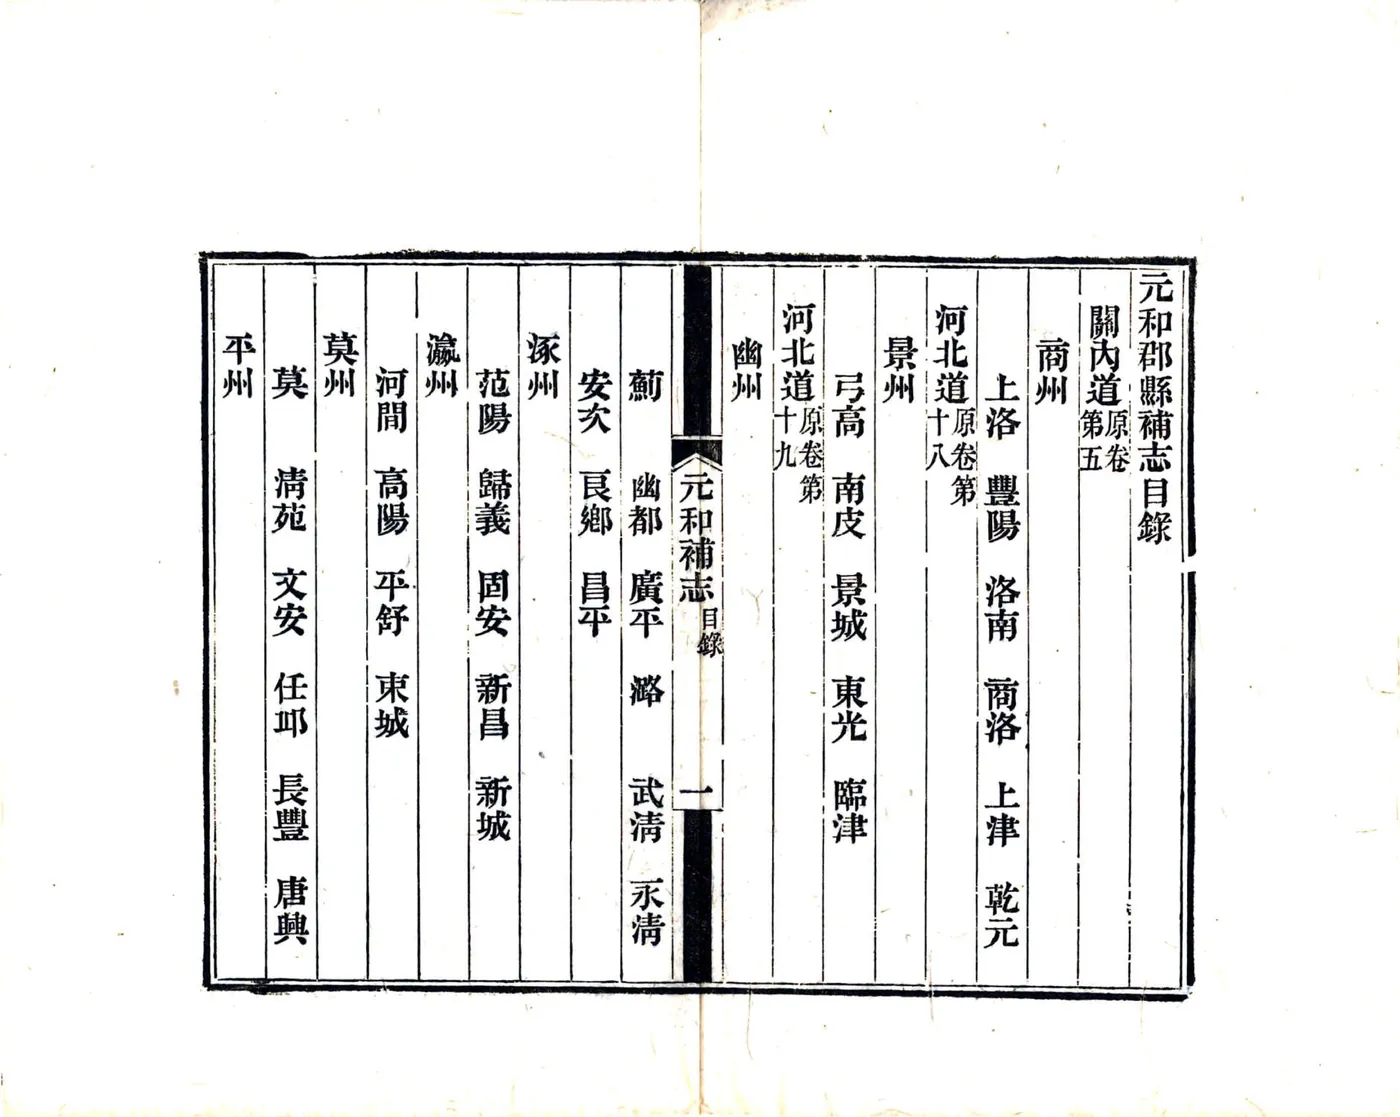 元和郡縣補志目錄
關內道原卷第五
商州
上洛　豐陽　洛南　商洛　上津　乾元
河北道原卷第十八
景州
弓高　南皮　景城　東光　臨津
河北道原卷第十九
幽州
元和補志　目錄　一
薊　幽都　廣平　潞　武清　永清
安次　良鄉　昌平
涿州
范陽　歸義　固安　新昌　新城
瀛州
河間　高陽　平舒　束城
莫州
莫　清苑　文安　任邱　長豐　唐興
平州